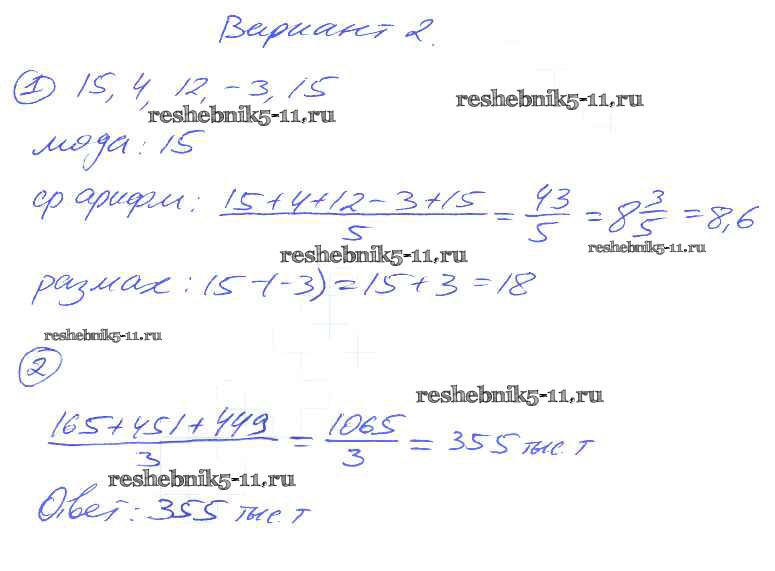 Вариант 2.
① 15, 4, 12, -3, 15
reshebnik5-11.ru reshebnik5-11.ru
мода: 15
ср арифм: (15+4+12-3+15)/5 = 43/5 = 8 3/5 = 8,6
reshebnik5-11.ru reshebnik5-11.ru
размах: 15-(-3)=15+3=18
reshebnik5-11.ru
②
reshebnik5-11.ru
(165+451+449)/3 = 1065/3 = 355 тыс. т
reshebnik5-11.ru
Ответ: 355 тыс. т